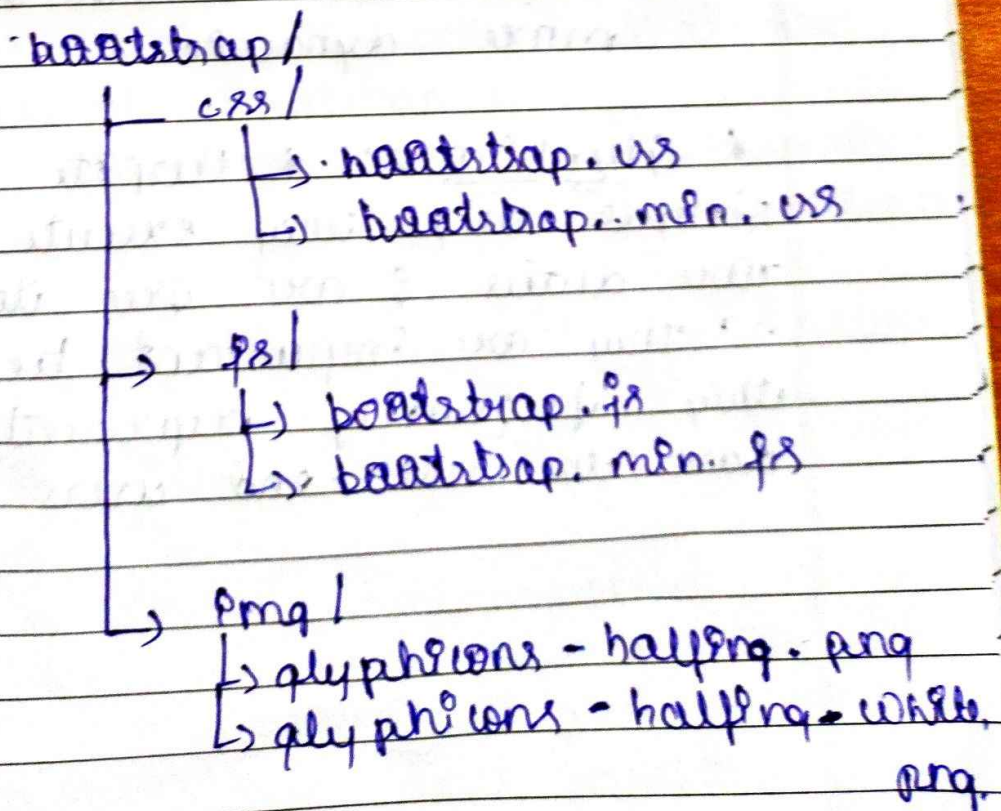 bootstrap/
css/
bootstrap.css
bootstrap.min.css
js/
bootstrap.js
bootstrap.min.js
img/
glyphicons-halfing.png
glyphicons-halfing-white.
png.